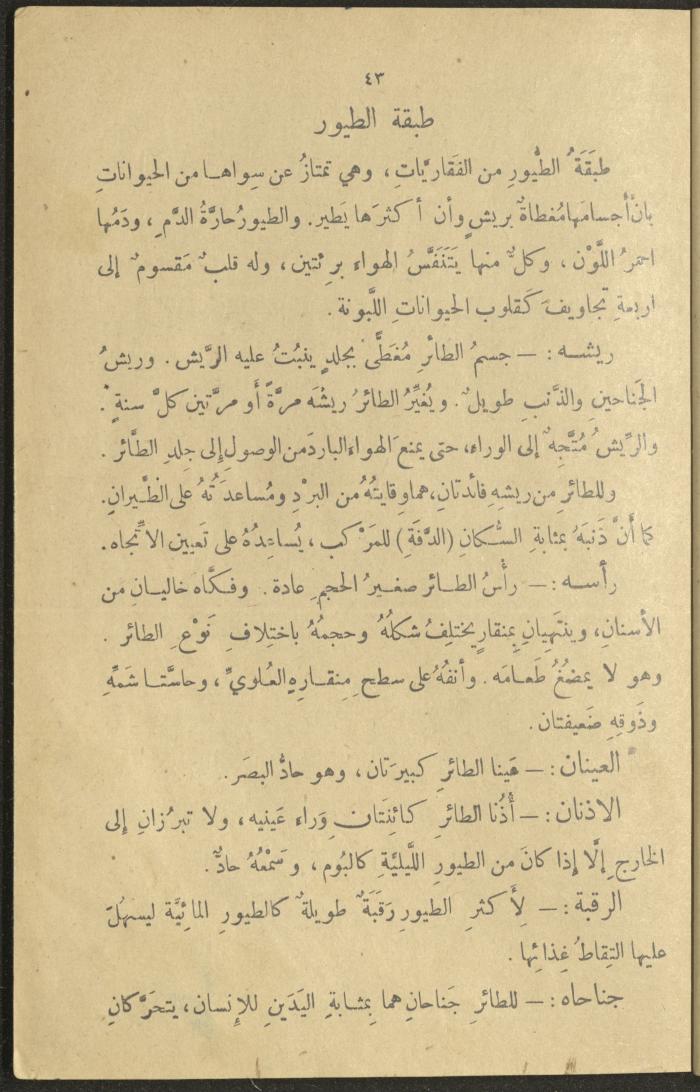 ٤٣
طبقة الطيور
طبَقَةُ الطيُورِ من الفَقاريَّاتِ ، وهي تمتازُ عن سِواهـا من الحيواناتِ
بانَّ أجسامَها مُغطاةٌ بريشٍ وأن أكثرَها يَطير. والطيورُ حارَّةُ الدَّمِ ، ودَمُها
احمرُ اللَّوْن ، وكلٌّ منها يَتَنَفَّسُ الهواء برِئتين ، وله قلبٌ مَقسومٌ إلى
اربعةِ تجاويفَ كَقلوب الحيواناتِ اللَّبونة .
ريشـه : — جسمُ الطائرِ مُغَطًّى بجلدٍ ينبُتُ عليه الرِّيش . وريشُ
الجَناحينِ والذَّنبِ طويلٌ . ويُغيِّرُ الطائرُ ريشَه مرَّةً أَو مرَّتين كلَّ سنةٍ .
والرِّيشُ مُتَّجِهٌ إلى الوراء، حتى يمنعَ الهواء الباردَ من الوصولِ إِلى جِلدِ الطَّائر .
وللطائرِ من ريشهِ فائدتان، هما وِقايتُهُ من البرْدِ ومُساعدَتُهُ على الطَّيرانِ.
كما أَنَّ ذَنبَهُ بمثابةِ السُّكانِ (الدَّفةِ) للمَرْكب ، يُساعِدُهُ على تَعيين الاتِّجاه.
رأسـه : — رأْسُ الطـائر صغيـرُ الحجمِ عادة . وفـكَّاه خاليـانِ من
الأسنانِ، وينتَهِيانِ بِمنقارٍ يختلِفُ شكلُهُ وحجمُهُ باختِلافِ نَوْعِ الطائر .
وهو لا يمضُغُ طَعـامَه . وأنفُهُ على سطحِ مِنقـارِهِ العُلويِّ ، وحاسَّتـا شَمِّهِ
وذَوقِهِ ضَعيفتان .
العينان : — عَينا الطائرِ كبيرَتان ، وهو حادُّ البصَر .
الاذنان : — أُذُنا الطائرِ كـائِنَتـانِ وَراء عَينيه ، ولا تبرُزانِ إلى
الخارجِ إلَّا إذا كانَ من الطيورِ اللَّيليَّةِ كالبُوم ، وسَمْعُهُ حادٌّ .
الرقبة : — لِأَكثرِ الطيورِ رَقَبَةٌ طويلةٌ كالطيورِ المائيَّة ليسهُلَ
عليها التِقاطُ غِذائِها .
جناحاه : — للطائرِ جَناحانِ هما بِمثـابةِ اليَدَينِ للإِنسان ، يتحرَّكانِ